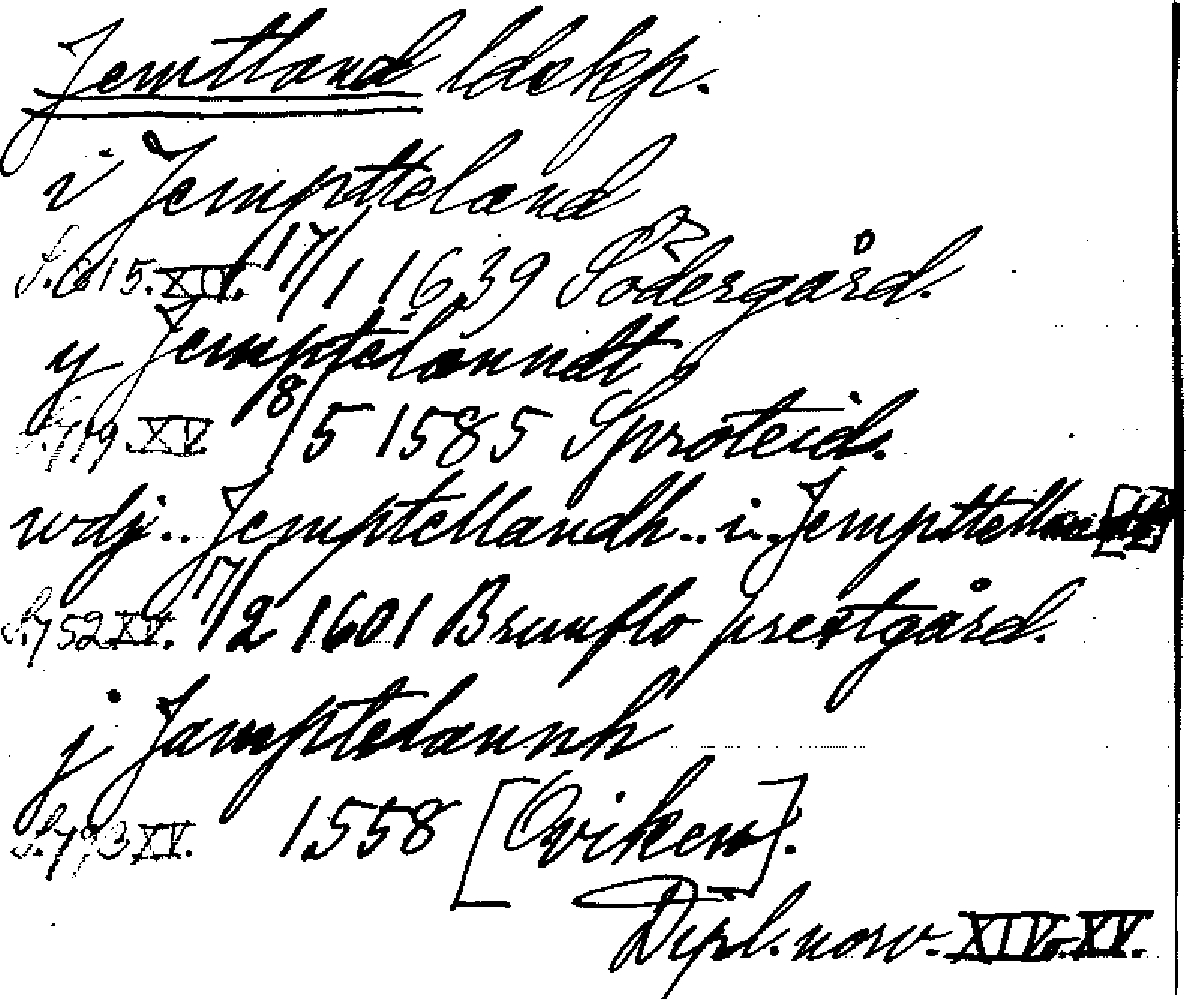 Jemtland ldskp.
i Jemptteland
S. 615. XIV. 17/1 1639 Södergård.
y Jemptelanndt
S. 719 XV 18/5 1585 Sproteid.
wdj .. Jemptellandh .. i .. Jempttelland
S. 752 XV. 17/2 1601 Brunflo prestgård.
j Jamptelannh
S. 793 XV. 1558 [Oviken].
Dipl. norv. XIV o. XV.